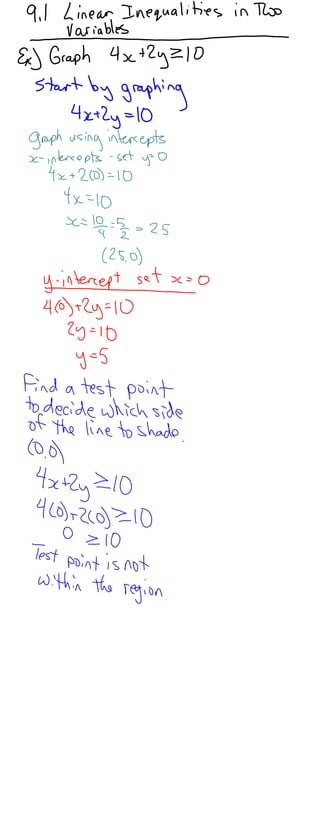 9.1 Linear Inequalities in Two
Variables
Ex) Graph 4x+2y≥10
Start by graphing
4x+2y=10
graph using intercepts
x-intercepts - set y=0
4x+2(0)=10
4x=10
x=10/4=5/2=25
(25,0)
y-intercept set x=0
4(0)+2y=10
2y=10
y=5
Find a test point
to decide which side
of the line to shade.
(0,0)
4x+2y≥10
4(0)+2(0)≥10
0≥10
Test point is not
within the region